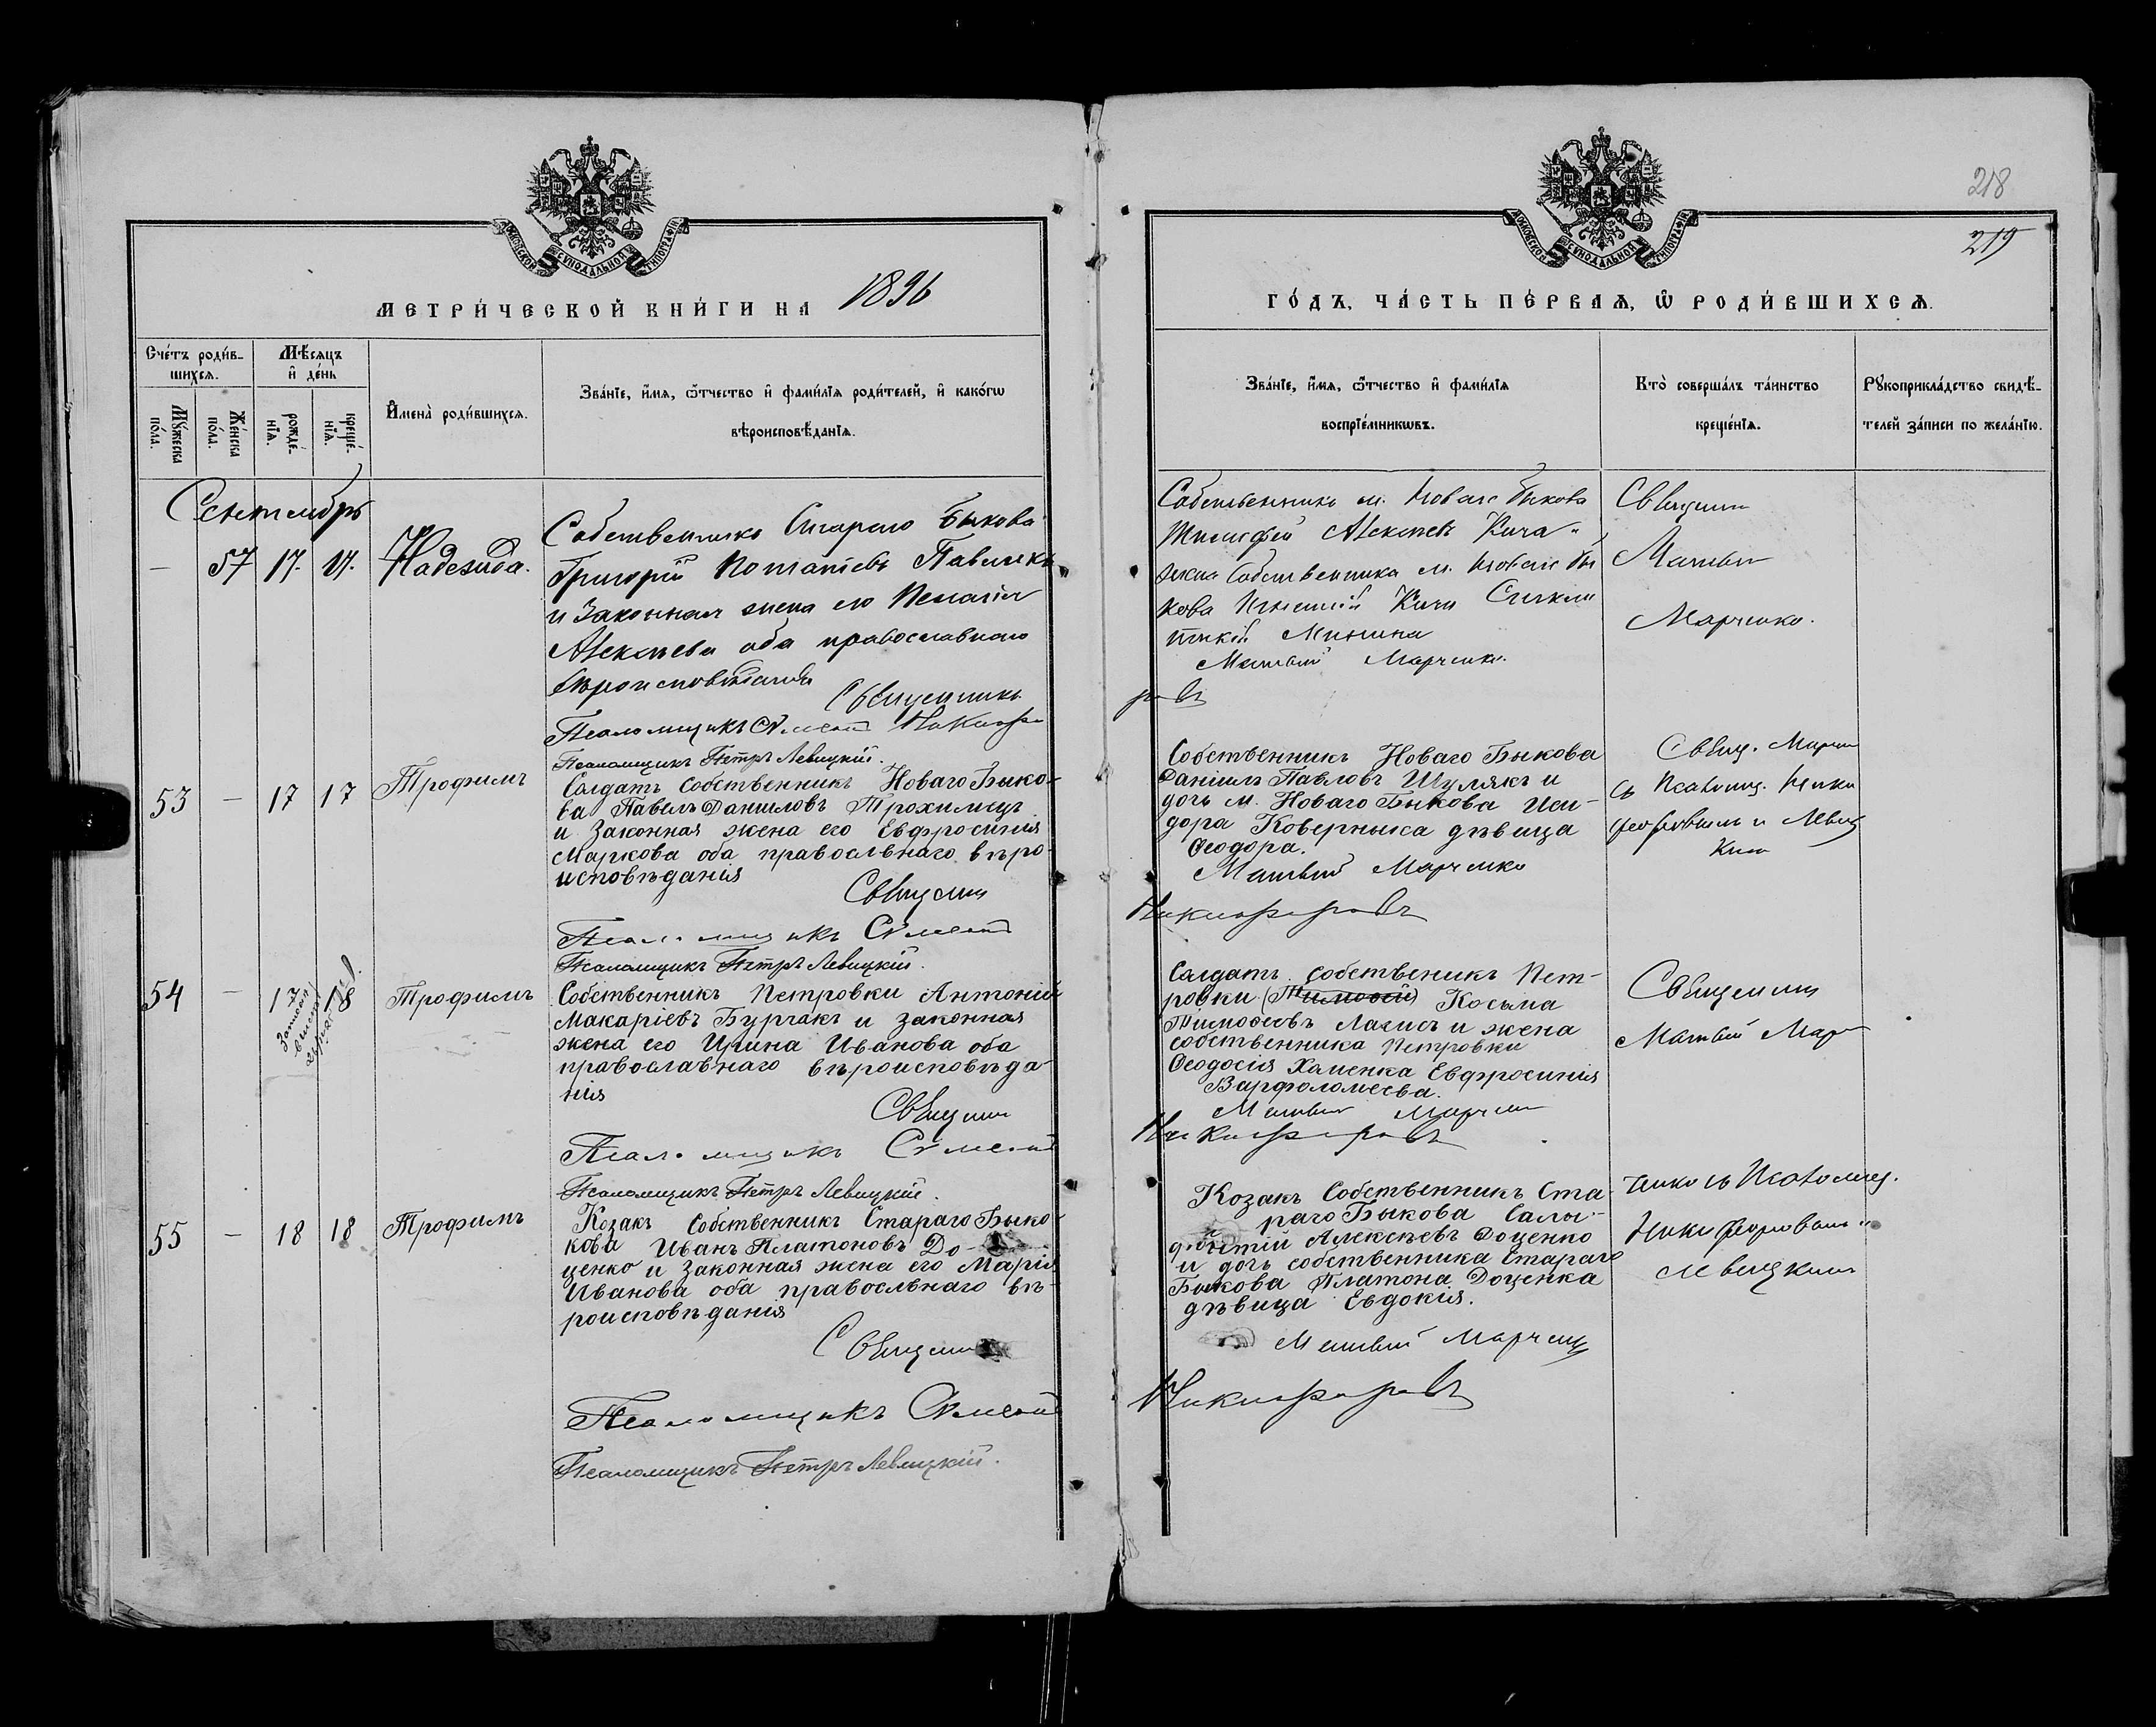 МОСКОВСКОЙ СѴНОДАЛЬНОЙ ТИПОГРАФІИ
МЕТРИ́ЧЕСКОЙ КНИ́ГИ НА 1896
Сче́тъ роди́в-
шихсѧ.
Мѣ́сѧцъ
и҆ де́нь
Мꙋ́жеска
по́ла.
Же́нска
по́ла.
рожде́-
нїѧ.
креще́-
нїѧ.
И҆мена̀ роди́вшихсѧ.
Зва́нїе, и҆́мѧ, ѻ҆́тчество и҆ фами́лїѧ роди́телей, и҆ како́гѡ
вѣроисповѣ́данїѧ.
Сентябрь
— 57 17. 17. Надежда.
Собственникъ Стараго Быкова
Григорій Потапіевъ Павлюкъ
и законная жена его Пелагія
Алексѣева оба православнаго
вѣроисповѣданія
Священникъ
Псаломщикъ
Псаломщикъ Петръ Левицкій.
53 — 17 17 Трофимъ
Солдатъ собственникъ Новаго Быко-
ва Павелъ Даниловъ Трохимецъ
и законная жена его Евфросинія
Маркова оба правослвнаго вѣро-
исповѣданія
Священ
Псаломщикъ
Псаломщикъ Петръ Левицкій.
54 — 17 18 Трофимъ
Собственникъ Петровки Антоній
Макаріевъ Бурчакъ и законная
жена его Ирина Иванова оба
православнаго вѣроисповѣда-
нія
Священ
Псаломщикъ
Псаломщикъ Петръ Левицкій.
55 — 18 18 Трофимъ
Козакъ Собственникъ Стараго Быко-
кова Иванъ Платоновъ До-
ценко и законная жена его Марія
Иванова оба правослвнаго вѣ-
роисповѣданія
Священ
Псаломщикъ
Псаломщикъ Петръ Левицкій.
218
МОСКОВСКОЙ СѴНОДАЛЬНОЙ ТИПОГРАФІИ
ГО́ДЪ, ЧА́СТЬ ПЕ́РВАѦ, Ѡ҆ РОДИ́ВШИХСѦ.
Зва́нїе, и҆́мѧ, ѻ҆́тчество и҆ фами́лїѧ
воспрїе́мникѡвъ.
Кто̀ соверша́лъ та́инство
креще́нїѧ.
Рꙋкоприкла́дство свидѣ́-
телей за́писи по жела́нїю.
Собственникъ м. Новаго Быкова
Алексѣевъ Кича-
Собственника м. Новаго Бы
кова
Минина
Матвѣй Марченко.
Священ
Матвѣй
Марченко.
Собственникъ Новаго Быкова
Даніилъ Павловъ Шулякъ и
дочь м. Новаго Быкова Иси-
дора Коверныка дѣвица
Ѳеодора.
Матвѣй Марченко
Никифоровъ
Свящ. Марч
съ Псаломщ. Ники
форовымъ и Левиц
кимъ
Солдатъ собственикъ Пет-
ровки (Тимоѳей) Косьма
Тимоѳеевъ Лагисъ и жена
собственника Петровки
Ѳеодосія Хаменка Евфросинія
Варфоломеева.
Матвѣй Марчен
Никифоровъ
Священ
Матвѣй Мар
Козакъ Собственникъ Ста-
раго Быкова
Алексѣевъ Доценко
и дочь собственника Стараго
Быкова Платона Доценка
дѣвица Евдокія.
Матвѣй Марченко
Никифоровъ
ченко съ Псаломщ.
Никифоровымъ и
Левицкимъ